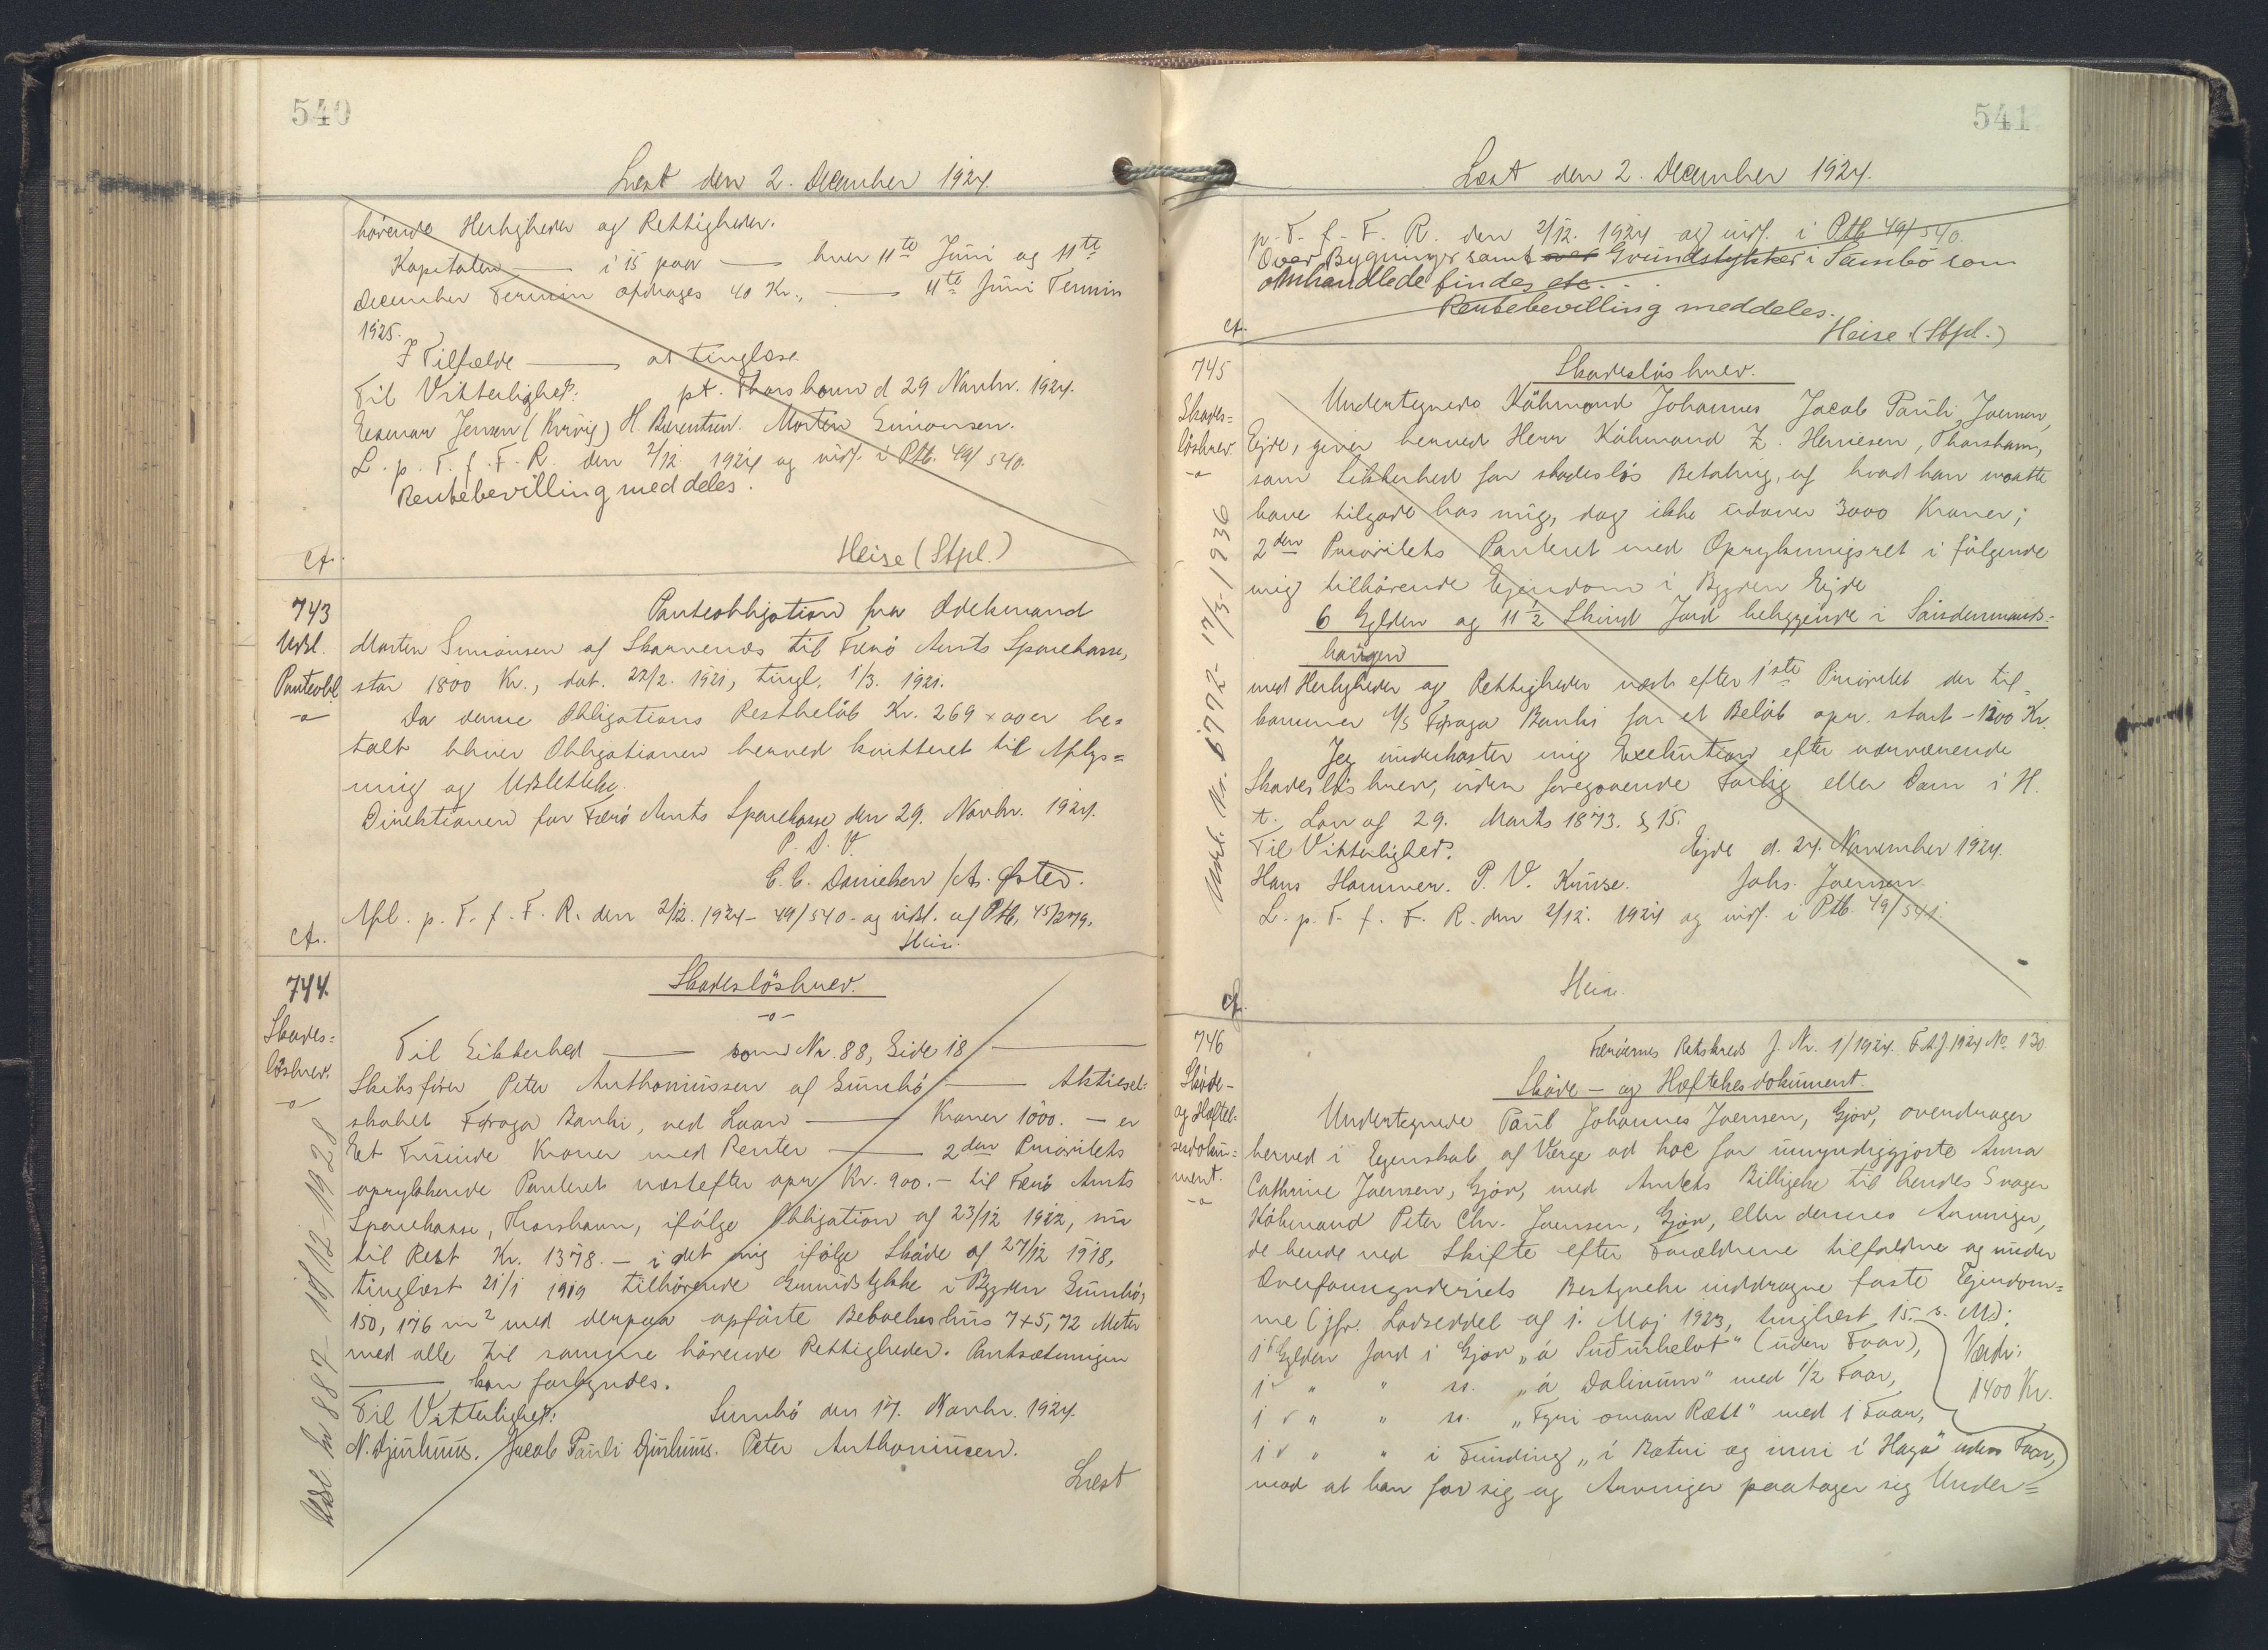 540
Læst den 2. December 1924.
hørende Herligheder og Rettigheder.
Kapitalen — i 15 paa — hver 11te Juni og 11te
December Termin afdrages 40 Kr., — 11te Juni Termin
1925.
I Tilfælde — at tinglæse.
Til Vitterlighed: pt. Thorshavn d 29 Novbr. 1924.
Jensen (Kvivig) H. Berentsen. Morten Simonsen.
L. p. T. f. F. R. den 2/12 1924 og indf. i Ptb. 49/540.
Rentebevilling meddeles.
Heise (Stpl.)
Cf.
743
Udsl.
Panteobl.
-o-
Panteobligation fra Odelsmand
Morten Simonsen af Skarvenæs til Færø Amts Sparekasse,
stor 1800 Kr., dat. 22/2. 1921, tingl. 1/3. 1921.
Da denne Obligations Restbeløb Kr. 269 x 00 er be=
talt bliver Obligationen herved kvitteret til Aflys=
ning og Udslettelse.
Direktionen for Færø Amts Sparekasse den 29. Novbr. 1924.
P. D. V.
C. C. Danielsen /A. Øster.
Afl. p. T. f. F. R. den 2/12. 1924 - 49/540 - og udsl. af Ptb. 45/279.
Heise.
Cf.
744.
Skades=
løsbrev.
-o-
Skadesløsbrev.
-o-
Til Sikkerhed — som Nr. 88, Side 18 —
Skibsfører Peter Anthoniussen af Sumbø — Aktiesel=
skabet Føroya Banki, ved Laan — Kroner 1000. — er
Et Tusinde Kroner med Renter — 2den Prioritets
oprykkende Panteret næstefter opr. Kr. 900. — til Færø Amts
Sparekasse, Thorshavn, ifølge Obligation af 23/12 1912, nu
til Rest Kr. 1378. — i det mig ifølge Skøde af 27/12 1918,
tinglæst 21/1 1919 tilhørende Grundstykke i Bygden Sumbø,
150,176 m2 med derpaa opførte Beboelseshus 7+5,72 Meter
med alle til samme hørende Rettigheder. Pantsætningen
— kan forlyndes.
Til Vitterlighed: Sumbø den 17. Novbr. 1924.
N. Djurhuus. Jacob Pauli Djurhuus. Peter Anthoniussen.
Læst
Udsl. Nr 887 - 18/12-1928
541
Læst den 2. December 1924.
p. T. f. F. R. den 2/12. 1924 og indf. i Ptb 49/540.
Over Bygninger samt over Grundstykker i Sumbø som
omhandlede findes etc. . .
Rentebevilling meddeles.
Heise (Stpl.)
Cf.
745
Skades=
løsbrev.
-o-
Skadesløsbrev.
Undertegnede Købmand Johannes Jacob Pauli Joensen,
Ejde, giver herved Herr Købmand Z. Heinesen, Thorshavn,
som Sikkerhed for skadesløs Betaling, af hvad han maatte
have tilgode hos mig, dog ikke udover 3000 Kroner;
2den Prioritets Panteret med Oprykningsret i følgende
mig tilhørende Ejendom i Bygden Ejde
6 Gylden og 11 1/2 Skind Jord beliggende i Sandsmands=
haugen
med Herligheder og Rettigheder næst efter 1ste Prioritet der til=
kommer A/S Føroya Banki for et Beløb opr. stort - 1200 Kr.
Jeg underkaster mig Exekution efter nærværende
Skadesløsbrev, uden foregaaende Forlig eller Dom i H.
t. Lov af 29. Marts 1873. § 15.
Til Vitterlighed: Ejde d. 24. November 1924.
Hans Hammer. P. V. Kruse. Johs. Joensen.
L. p. T. f. F. R. den 2/12. 1924 og indf. i Ptb. 49/541.
Heise.
Cf.
Udsl. Nr. 5772 - 12/5-1936
746
Skøde-
og Hæftel-
sesdoku=
ment.
-o-
Færøernes Retskreds J. Nr. 1/1924. F.A.J. 1924 No. 130.
Skøde- og Hæftelsesdokument.
Undertegnede Paul Johannes Joensen, Gjov, overdrager
herved i Egenskab af Værge ad hoc for umyndiggjorte Anna
Cathrine Joensen, Gjov, med Amtets Billigelse til hendes Svoger
Købmand Peter Chr. Joensen, Gjov, eller dennes Arvinger,
de hende ved Skifte efter Forældrene tilfaldne og under
Overformynderiets Bestyrelse inddragne faste Ejendom=
me (jfr. Lodseddel af 1. Maj 1923, tinglæst 15. s. M):
1 Gylden Jord i Gjov „á Suðurhelvt" (uden Faar),
1 " " sst. „á Dalinum" med 1/2 Faar,
1 " " sst. „Fyri oman Rætt" med 1 Faar,
1 " " i Funding „í Botni og inni í Haga" uden Faar,
Værdi:
1400 Kr.
mod at han for sig og Arvinger paatager sig Under=